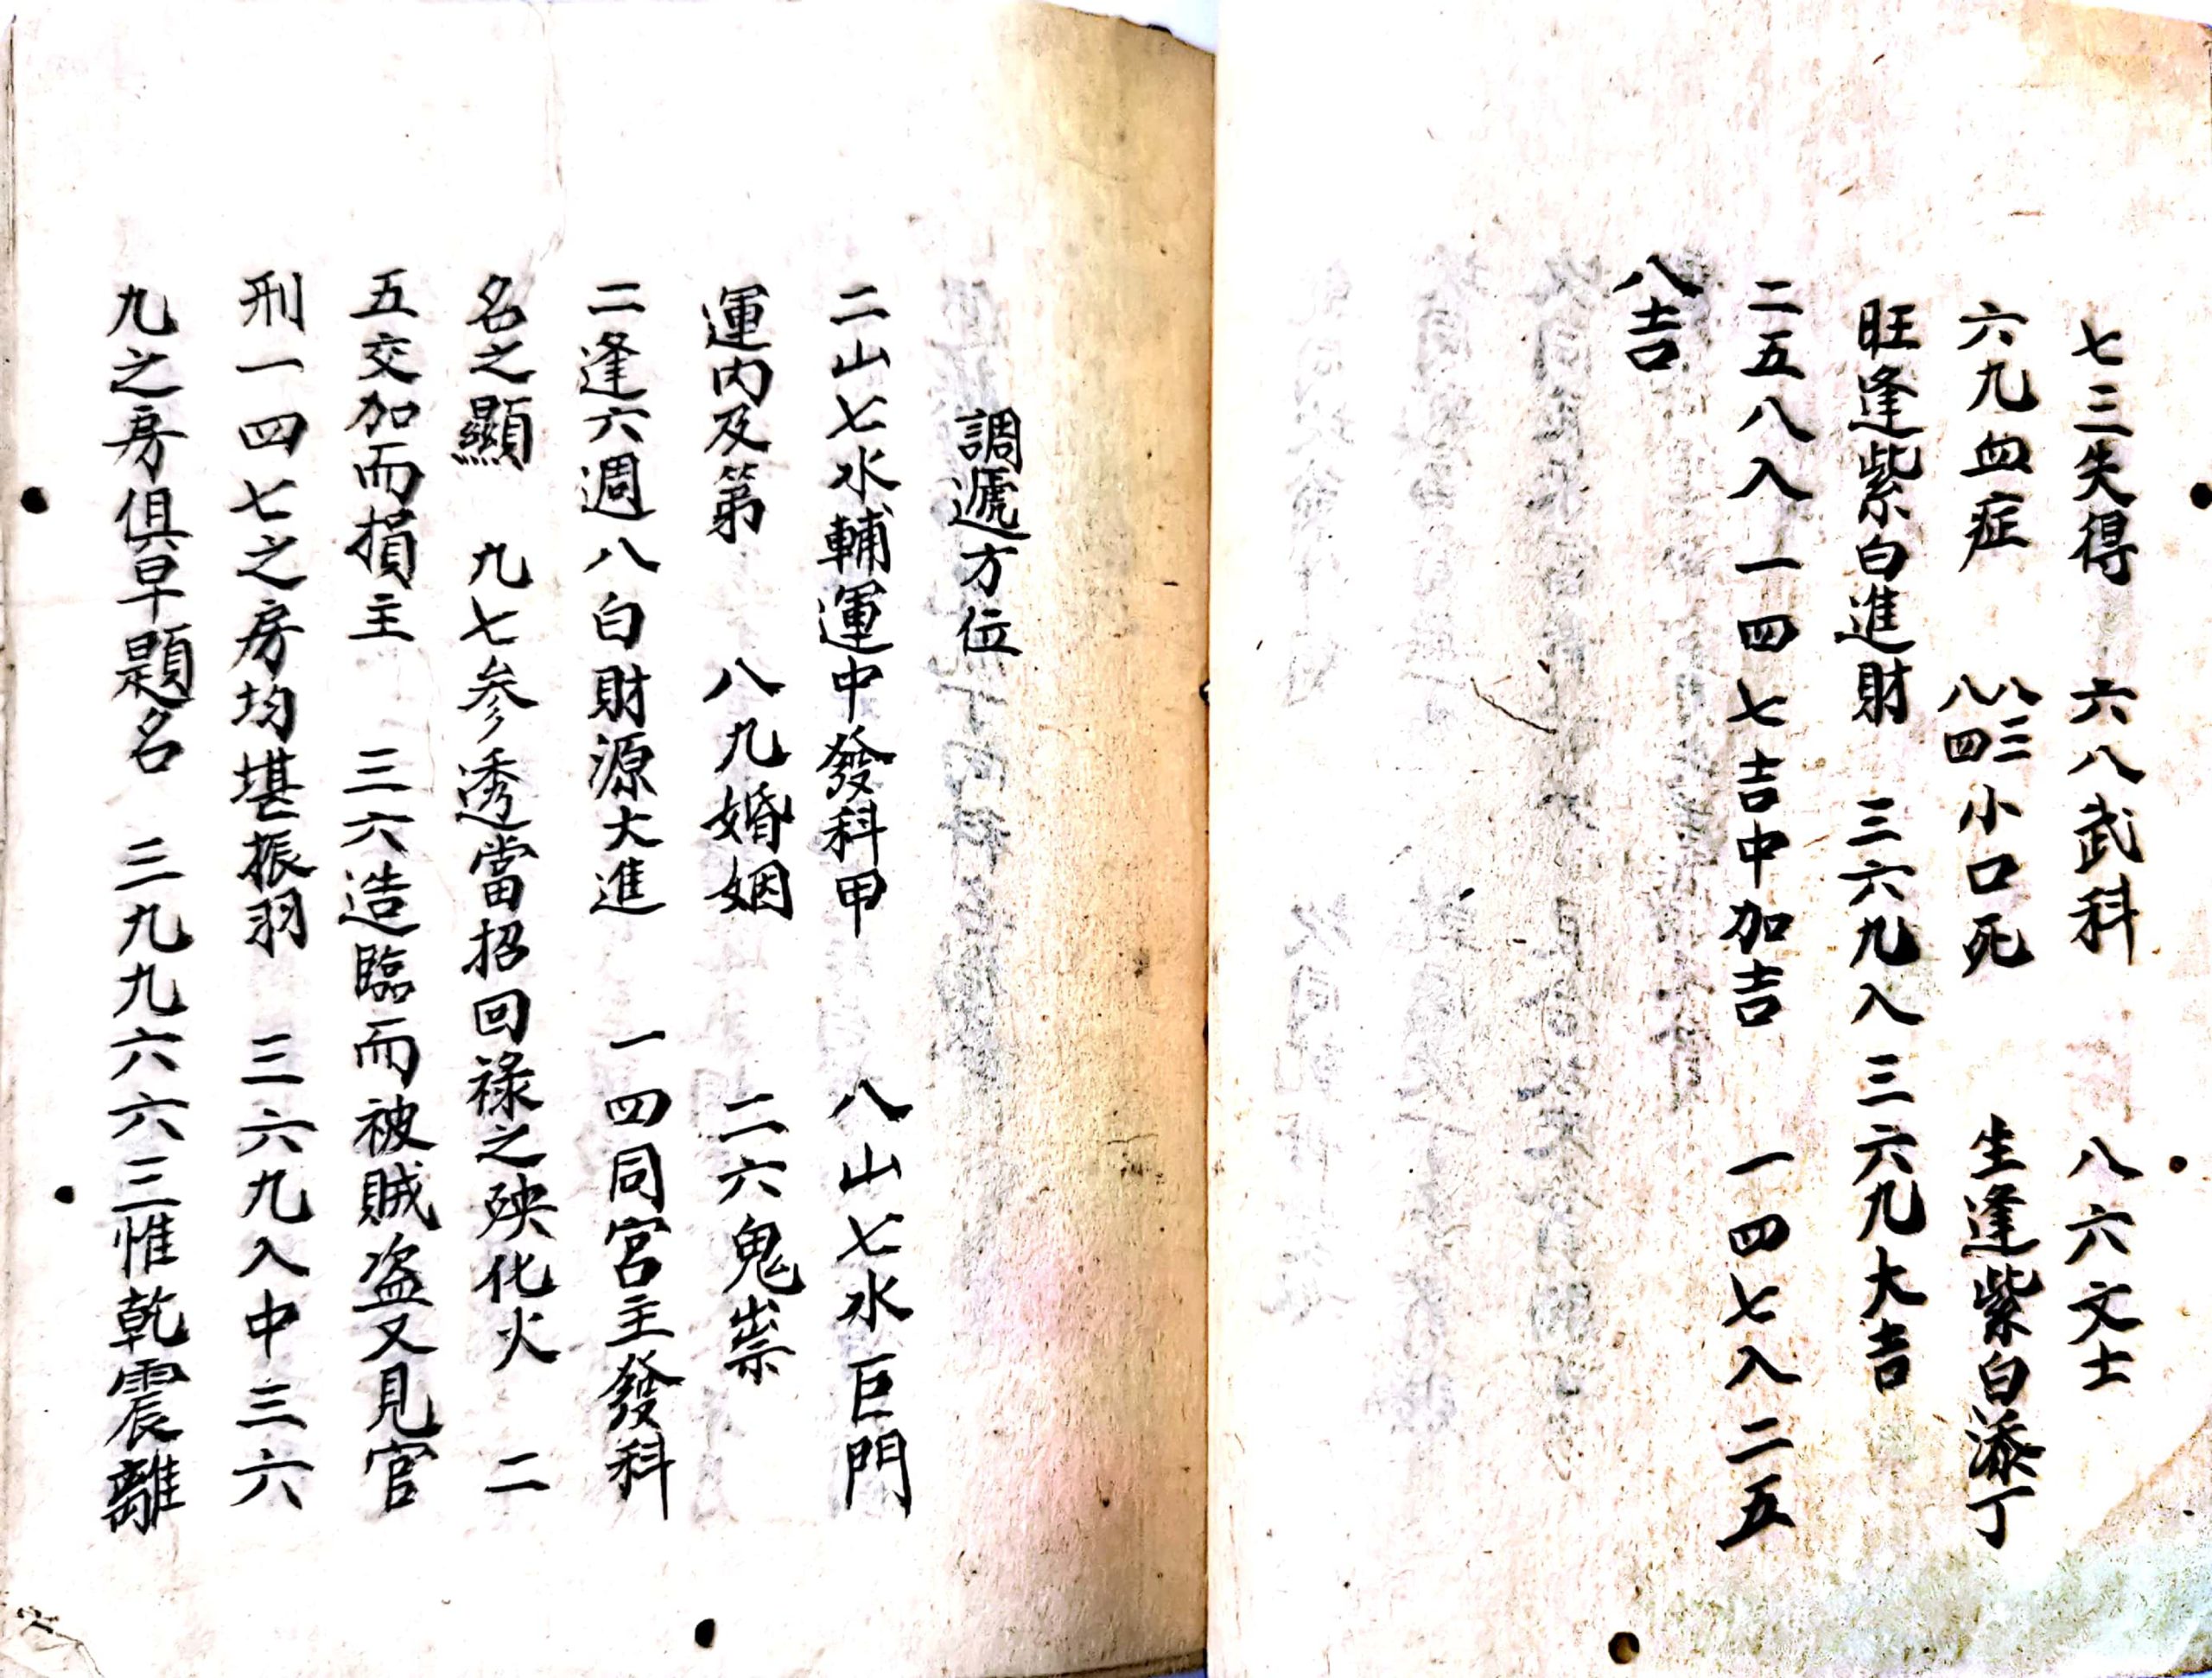 七三失得　六八武科　八六文士
六九血症　八三八四小口死　生逢紫白添丁
旺逢紫白進財　三六九入三六九大吉
二五八入一四七吉中加吉　一四七入二五
八吉
調遞方位
二山七水輔運中發科甲　八山七水巨門
運内及第　八九婚姻　二六鬼崇
二逢六週八白財源大進　一四同宮主發科
名之顯　九七参透當招回祿之殃化火　二
五交加而損主　三六造臨而被賊盗又見官
刑一四七之房均堪振羽　三六九入中三六
九之房俱早題名　三九九六六三惟乾震離